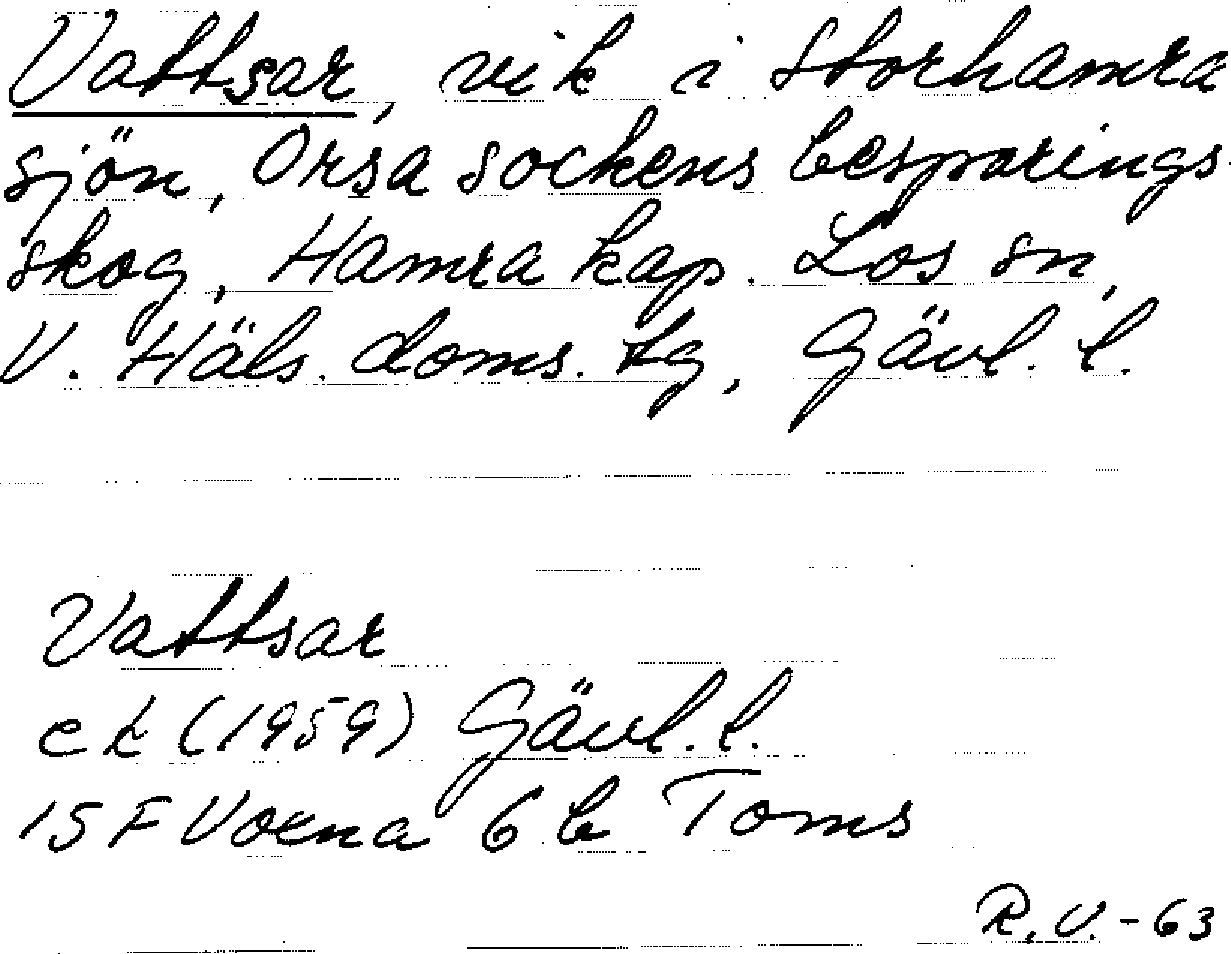 Vattsar, vik i Storhamra
sjön, Orsa sockens besparings-
skog, Hamra kap. Los sn,
V. Häls. doms. tg, Gävl. l.
Vattsar
ek (1959) Gävl. l.
15 F Voxna 6 b Toms
R.V.-63